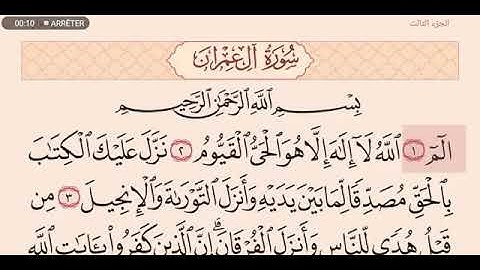 00:10 ■ ARRÊTER الجزء الثالث
سُورَةُ آلِ عِمْرَان
بِسْمِ ٱللَّهِ ٱلرَّحْمَٰنِ ٱلرَّحِيمِ
الٓمٓ ١ ٱللَّهُ لَآ إِلَٰهَ إِلَّا هُوَ ٱلْحَىُّ ٱلْقَيُّومُ ٢ نَزَّلَ عَلَيْكَ ٱلْكِتَٰبَ
بِٱلْحَقِّ مُصَدِّقًا لِّمَا بَيْنَ يَدَيْهِ وَأَنزَلَ ٱلتَّوْرَىٰةَ وَٱلْإِنجِيلَ ٣ مِن
قَبْلُ هُدًى لِّلنَّاسِ وَأَنزَلَ ٱلْفُرْقَانَ ۗ إِنَّ ٱلَّذِينَ كَفَرُوا۟ بِـَٔايَٰتِ ٱللَّهِ